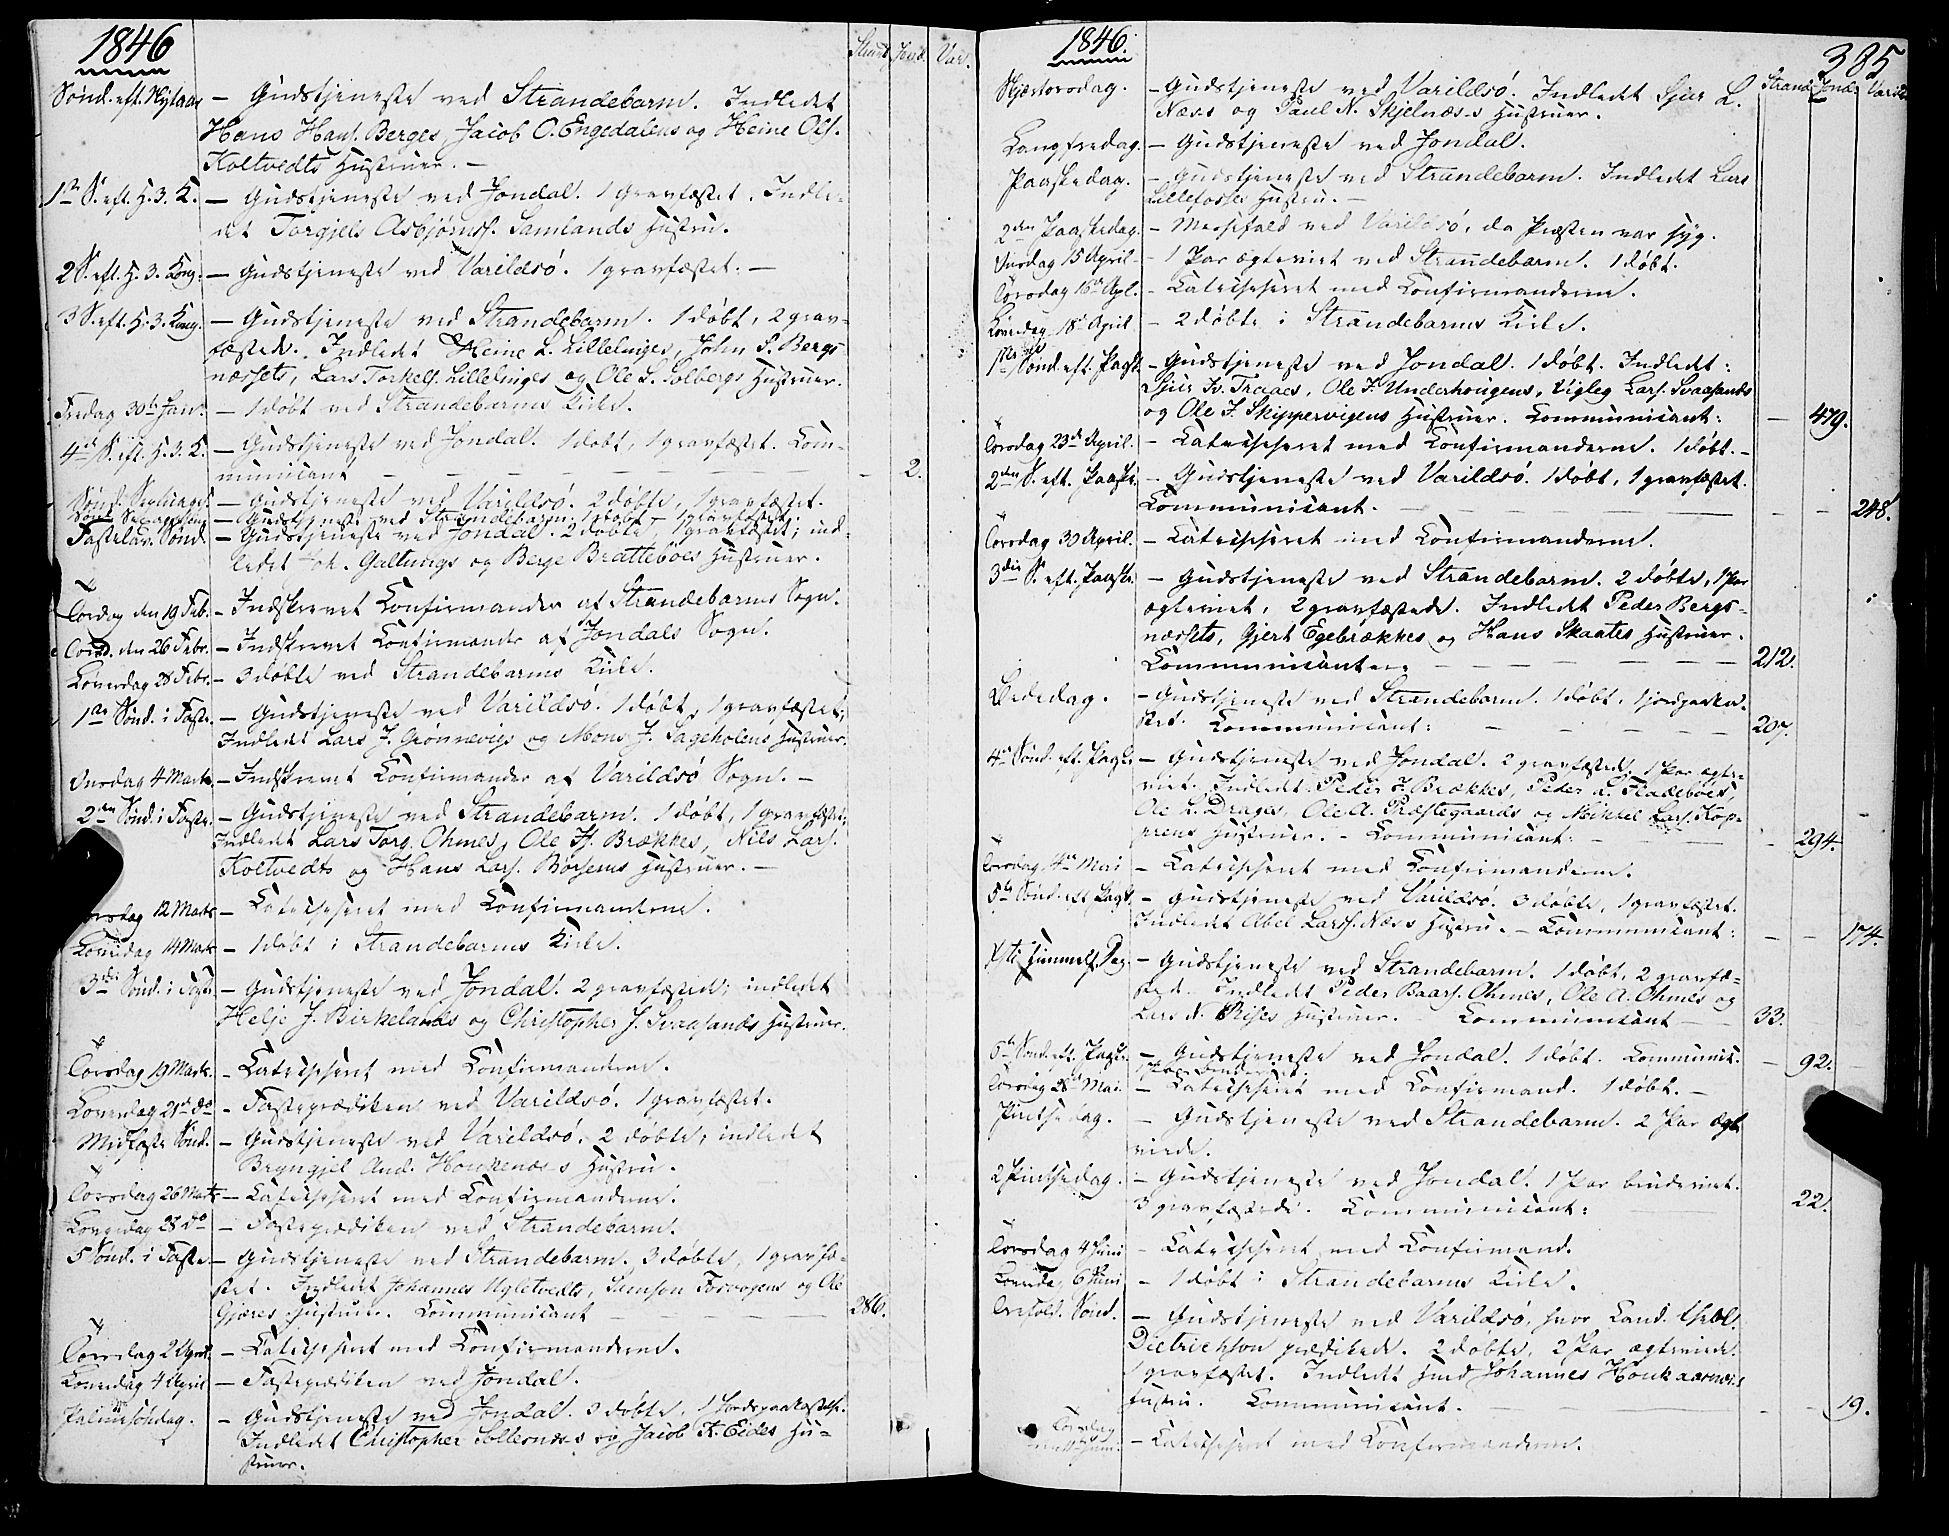 1846
Strand. Jond. Var.
Sönd. eft. Nytaar — Gudstjeneste ved Strandebarm. Indledet
Hans Hans. Berges, Jacob O. Engedalens og Heine Ols.
Koltvedts Hustruer. —
1ste S. eft. H. 3. K. — Gudstjeneste ved Jondal. 1 gravfæstet. Indle-
det Torgjels Asbjörns. Samlands Hustru.
2 S. eft. H. 3. Kong. — Gudstjeneste ved Varildsö. 1 gravfæstet. —
3 S. eft. H. 3. Kong. — Gudstjeneste ved Strandebarm. 1 døbt, 2 grav-
fæstede. Indledet Heine L. Lillelinges, John S. Bergs-
næssets, Lars Torkels. Lillelinges og Ole L. Solbergs Hustruer.
Fredag 30te Jan. — 1 døbt ved Strandebarms Kirke.
4de S. eft. H. 3. K. — Gudstjeneste ved Jondal. 1 døbt, 1 gravfæstet. Com-
municant — — — — — — 2.
Sönd. Septuages. — Gudstjeneste ved Varildsö. 2 døbte, 1 gravfæstet.
Sönd. Sexagesima — Gudstjeneste ved Strandebarm. 1 døbt, 1 gravfæstet.
Fastelav. Sönd. — Gudstjeneste ved Jondal. 2 døbte, 1 gravfæstet; ind-
ledet Joh. Galtungs og Berge Bratteboes Hustruer.
Torsdag den 19 Feb. — Indskrevet Confirmander af Strandebarms Sogn.
Torsd. den 26 Febr. — Indskrevet Confirmander af Jondals Sogn.
Löverdag 28 Febr. — 3 døbte ved Strandebarms Kirke.
1ste Sönd. i Faste. — Gudstjeneste ved Varildsö. 1 døbt, 1 gravfæstet;
Indledet Lars J. Grönnevigs og Mons J. Sageholens Hustruer.
Onsdag 4 Marts. — Indskrevet Confirmander af Varildsö Sogn. —
2den Sönd. i Faste. — Gudstjeneste ved Strandebarm. 1 døbt, 1 gravfæstet;
Indledet Lars Torg. Ohmes, Ole H. Brækkes, Nils Lars.
Koltvedts og Hans Lars. Börsems Hustruer. —
Torsdag 12 Marts — Catechiseret med Confirmanderne.
Löverdag 14 Marts — 1 døbt i Strandebarms Kirke.
3die Sönd. i Faste — Gudstjeneste ved Jondal. 2 gravfæstede; indledet
Helje J. Birkelands og Christopher J. Svaasands Hustruer.
Torsdag 19 Marts. — Catechiseret med Confirmanderne.
Löverdag 21de do — Fasteprædiken ved Varildsö. 1 gravfæstet.
Midfaste Sönd. — Gudstjeneste ved Varildsö. 2 døbte, indledet
Bryngjel And. Houkenæss Hustru.
Torsdag 26 Marts — Catechiseret med Confirmanderne.
Löverdag 28 do — Fasteprædiken ved Strandebarm.
5 Sönd. i Faste — Gudstjeneste ved Strandebarm. 3 døbte, 1 gravfæ-
stet. Indledet Johannes Ugletvedts, Samson Fosvogens og Ole
Gjæres Hustruer. Communicant — — — — 286.
Torsdag 2 April. — Catechiseret med Confirmanderne.
Löverdag 4 April — Fasteprædiken ved Jondal.
Palmesöndag. — Gudstjeneste ved Jondal. 3 døbte. 1 Jordspaakastelse.
Indledet Christopher Solternæss og Jacob K. Eides Hu-
struer.
1846.
385
Strand. Jond. Varild.
Skjærtorsdag. — Gudstjeneste ved Varildsö. Indledet Sjur L.
Næss og Paul N. Skjelnæss Hustruer.
Langfredag. — Gudstjeneste ved Jondal.
Paaskedag. — Gudstjeneste ved Strandebarm. Indledet Lars
Lillefosses Hustru. —
2den Paaskedag. — Messefald ved Varildsö, da Præsten var syg.
Onsdag 15 April — 1 Par ægteviet ved Strandebarm. 1 døbt.
Torsdag 16de Apl. — Catechiseret med Confirmanderne.
Löverdag 18de April — 2 døbte i Strandebarms Kirke.
1ste Sönd. eft. Paask. — Gudstjeneste ved Jondal. 1 døbt. Indledet:
Sjur Iv. Traaes, Ole J. Underhougens, Vigleg Lars. Svaasands
og Ole J. Skippervigens Hustruer. Communicant: — 479.
Torsdag 23de April. — Catechiseret med Confirmanderne. 1 døbt. —
2den S. eft. Paaske. — Gudstjeneste ved Varildsö. 1 døbt, 1 gravfæstet.
Communicant. — — — — 248.
Torsdag 30 April. — Catechiseret med Confirmanderne.
3die S. eft. Paaske. — Gudstjeneste ved Strandebarm. 2 døbte, 1 Par
ægteviet, 2 gravfæstede. Indledet Peder Bergs-
næssets, Gjert Egebrækkes og Hans Skaates Hustruer.
Communicanter. — — — — 212.
Bededag. — Gudstjeneste ved Strandebarm. 1 døbt, 1 jordpaaka-
stet. Communicant: — — — 207.
4de Sönd. eft. Paaske — Gudstjeneste ved Jondal. 2 gravfæstede, 1 Par ægte-
viet. Indledet Peder J. Brækkes, Peder L. Fladeboes,
Ole L. Drages, Ole A. Præstegaards og Mikkel Lars. Kop-
rens Hustruer. — Communicant: — — 294.
Torsdag Mai — Catechiseret med Confirmanderne.
5te Sönd. eft. Paask. — Gudstjeneste ved Varildsö. 3 døbte, 1 gravfæstet.
Indledet Abel Larss. Næss Hustru. — Communicant: — — 174.
Xsti Himmelf. Dag. — Gudstjeneste ved Strandebarm. 1 døbt, 2 gravfæ-
sted. Indledet Peder Baars. Ohmes, Ole A. Ohmes og
Lars N. Rises Hustruer. — Communicant — — 33.
6te Sönd. eft. Paaske. — Gudstjeneste ved Jondal. 1 døbt. Communic. — 92.
1 Par brudeviet.
Torsdag 28de Mai. — Catechiseret med Confirmand. 1 døbt. —
Pintsedag. — Gudstjeneste ved Strandebarm. 2 Par ægte-
viede.
2 Pintsedag. — Gudstjeneste ved Jondal. 1 Par brudeviet.
3 gravfæstede. Communicant: — 22.
Torsdag 4 Juni — Catechiseret med Confirmand.
Löverda. 6 Juni — 1 døbt i Strandebarms Kirke.
Trefold. Sönd. — Gudstjeneste ved Varildsö, hvor Cand. theol.
Dietrichson prædikede. 2 døbte, 2 Par ægteviede.
1 gravfæstet. Indledt hred Johannes Houkaasnæss
Hustru. Communicant. — — — 19.
Torsdag Juni. — Catechiseret med Confirmanderne.